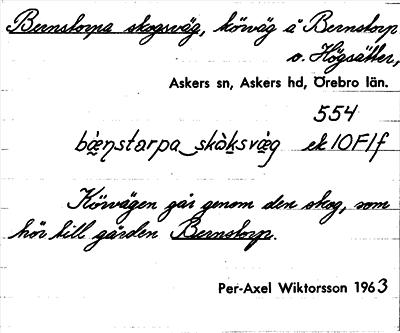 Bernstorpa skogsväg, körväg å Bernstorp
o. Högsätter,
Askers sn, Askers hd, Örebro län.
554
bæ̀ṇstarpa skòksvæ̀g ek 10F1f
Körvägen går genom den skog, som
hör till gården Bernstorp.
Per-Axel Wiktorsson 1963